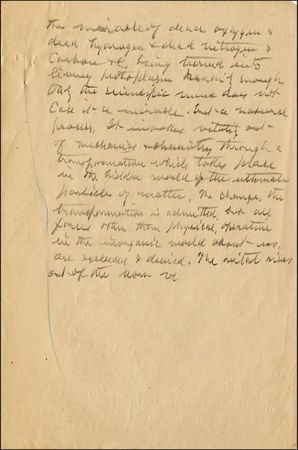 the miracle of dead oxygen &
dead hydrogen & dead nitrogen &
Carbon &c, being turned into
living protoplasm enough
But the scientific mind does not
call it a miracle. but a natural
process, It evokes vitality out
of mechanics & chemistry through a
transformation which takes place
in the hidden world of the ultimate
particles of matter. The change, the
transformation is admitted, but all
forces other than physical, operative
in the inorganic world about us,
are excluded & denied. The vital rises
out of the non ve